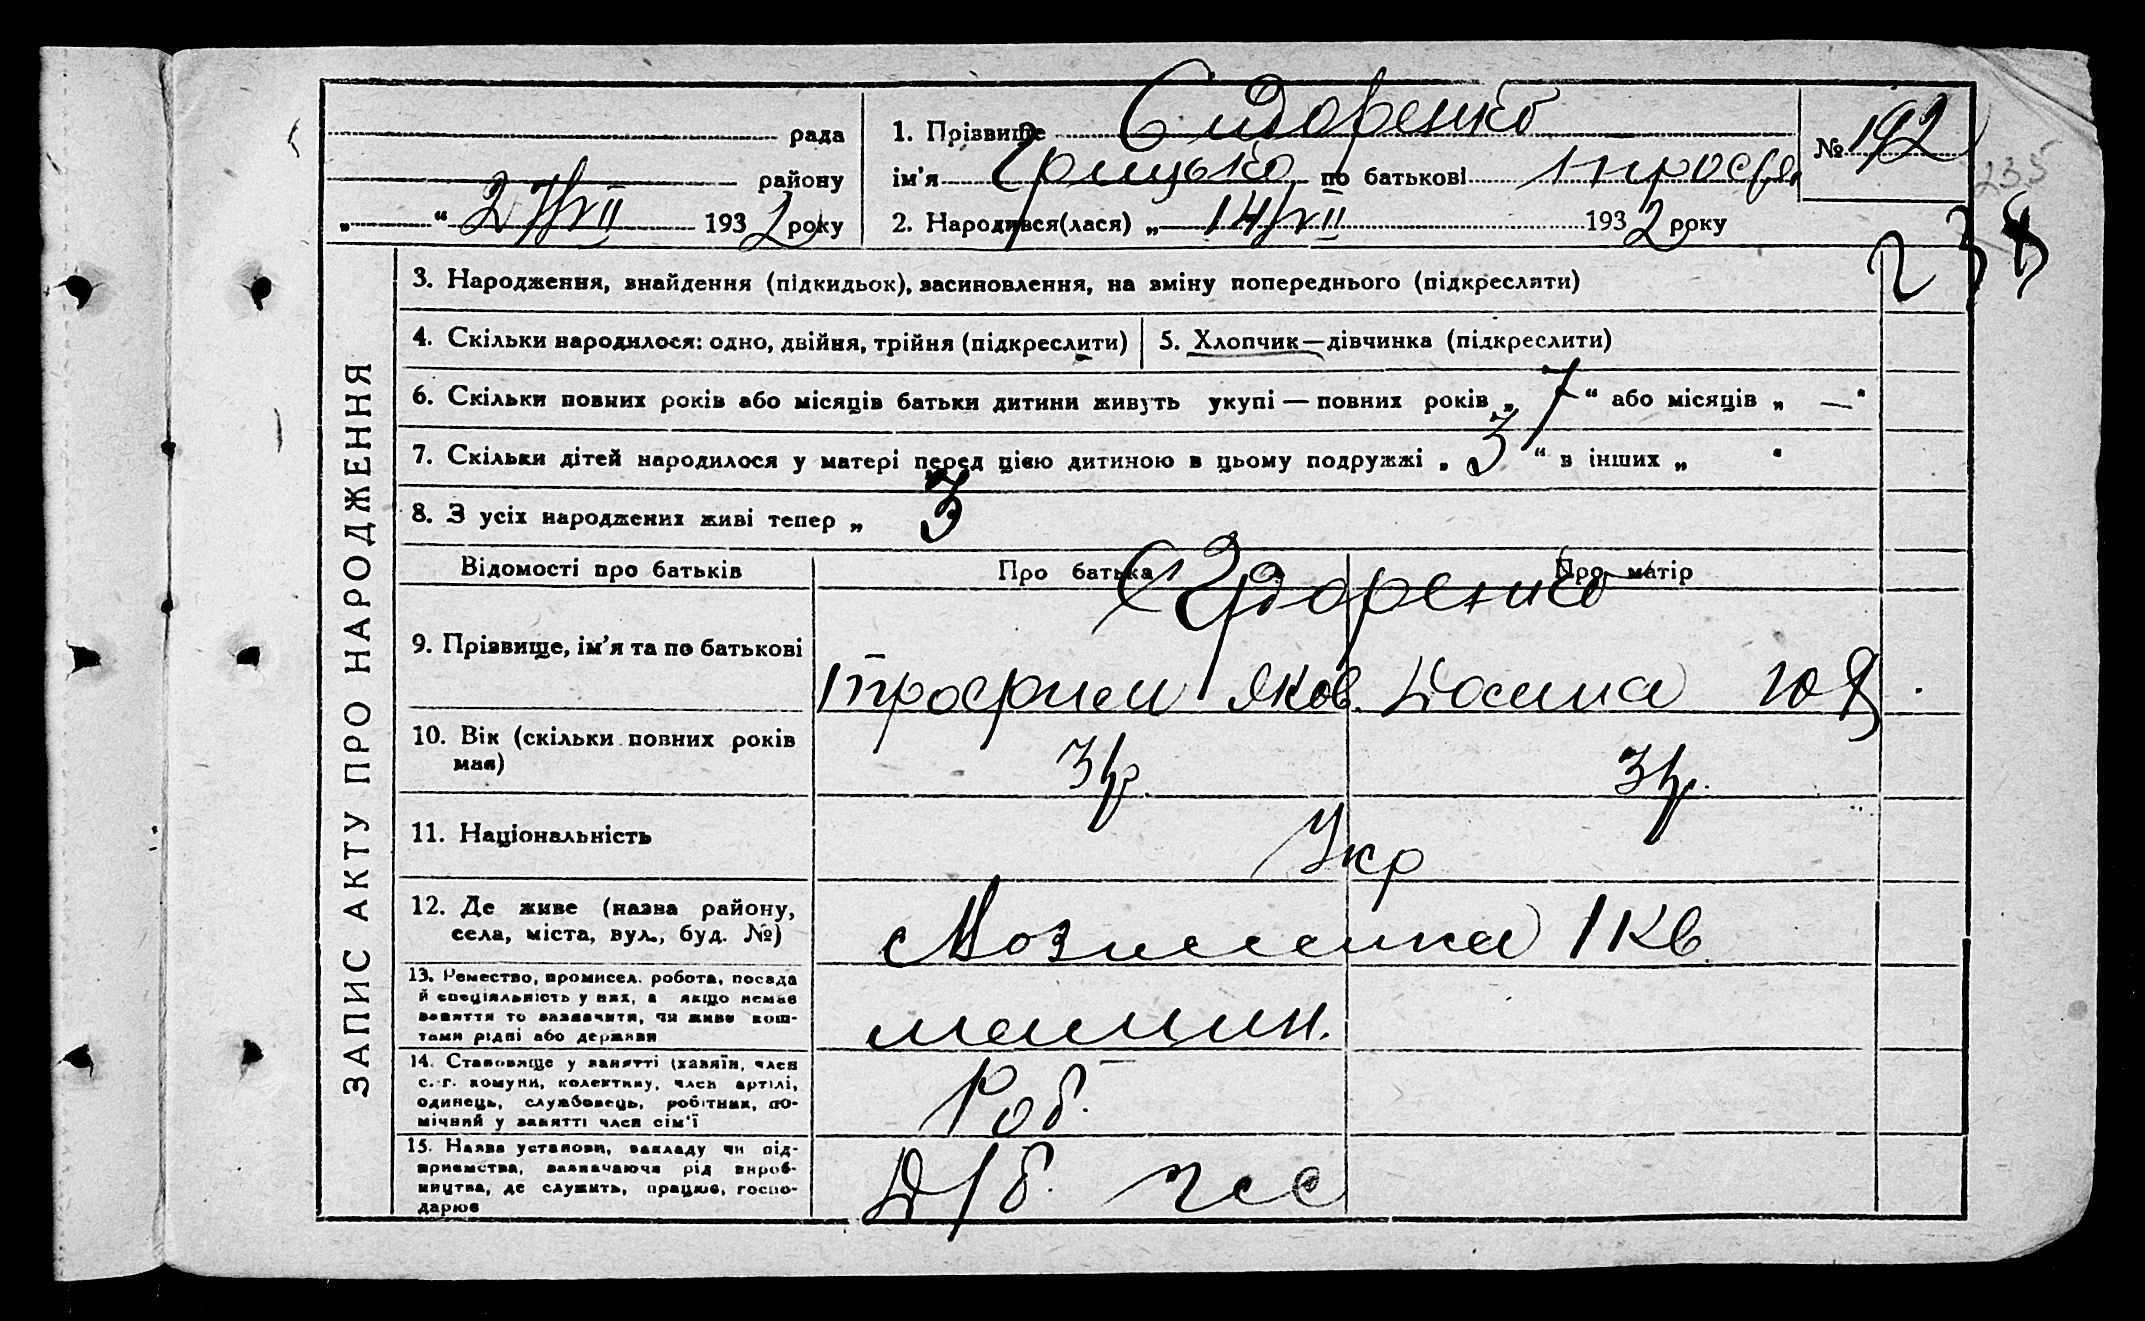 рада
району
„ “ 27/VII 1932 року
1. Прізвище Сидоренко
ім'я Грицько по батькові Трофи
2. Народився(лася) „ 14/VII 1932 року
№ 192
235
238
ЗАПИС АКТУ ПРО НАРОДЖЕННЯ
3. Народження, знайдення (підкидьок), засиновлення, на зміну попереднього (підкреслити)
4. Скільки народилося: одно, двійня, трійня (підкреслити)
5. Хлопчик—дівчинка (підкреслити)
6. Скільки повних років або місяців батьки дитини живуть укупі — повних років „ 7 “ або місяців „ — “
7. Скільки дітей народилося у матері перед цією дитиною в цьому подружжі „ 3 “ в інших „ “
8. З усіх народжених живі тепер „ 3
Відомості про батьків
Про батька
Про матір
Сидоренко
9. Прізвище, ім'я та по батькові
Трофим Яков.
10. Вік (скільки повних років
має)
11. Національність
Укр
12. Де живе (назва району,
села, міста, вул., буд. №)
1 кв.
13. Ремество, промисел. робота, посада
й спеціяльність у них, а якщо немає
заняття то зазначити, чи живе кош-
тами рідні або держави
машин.
14. Становище у занятті (хазяїн, член
с.-г. комуни, колективу, член артілі,
одинець, службовець, робітник, по-
мічний у занятті член сім'ї
Роб.
15. Назва установи, закладу чи під-
приємства, зазначаючи рід вироб-
ництва, де служить, працює, госпо-
дарює